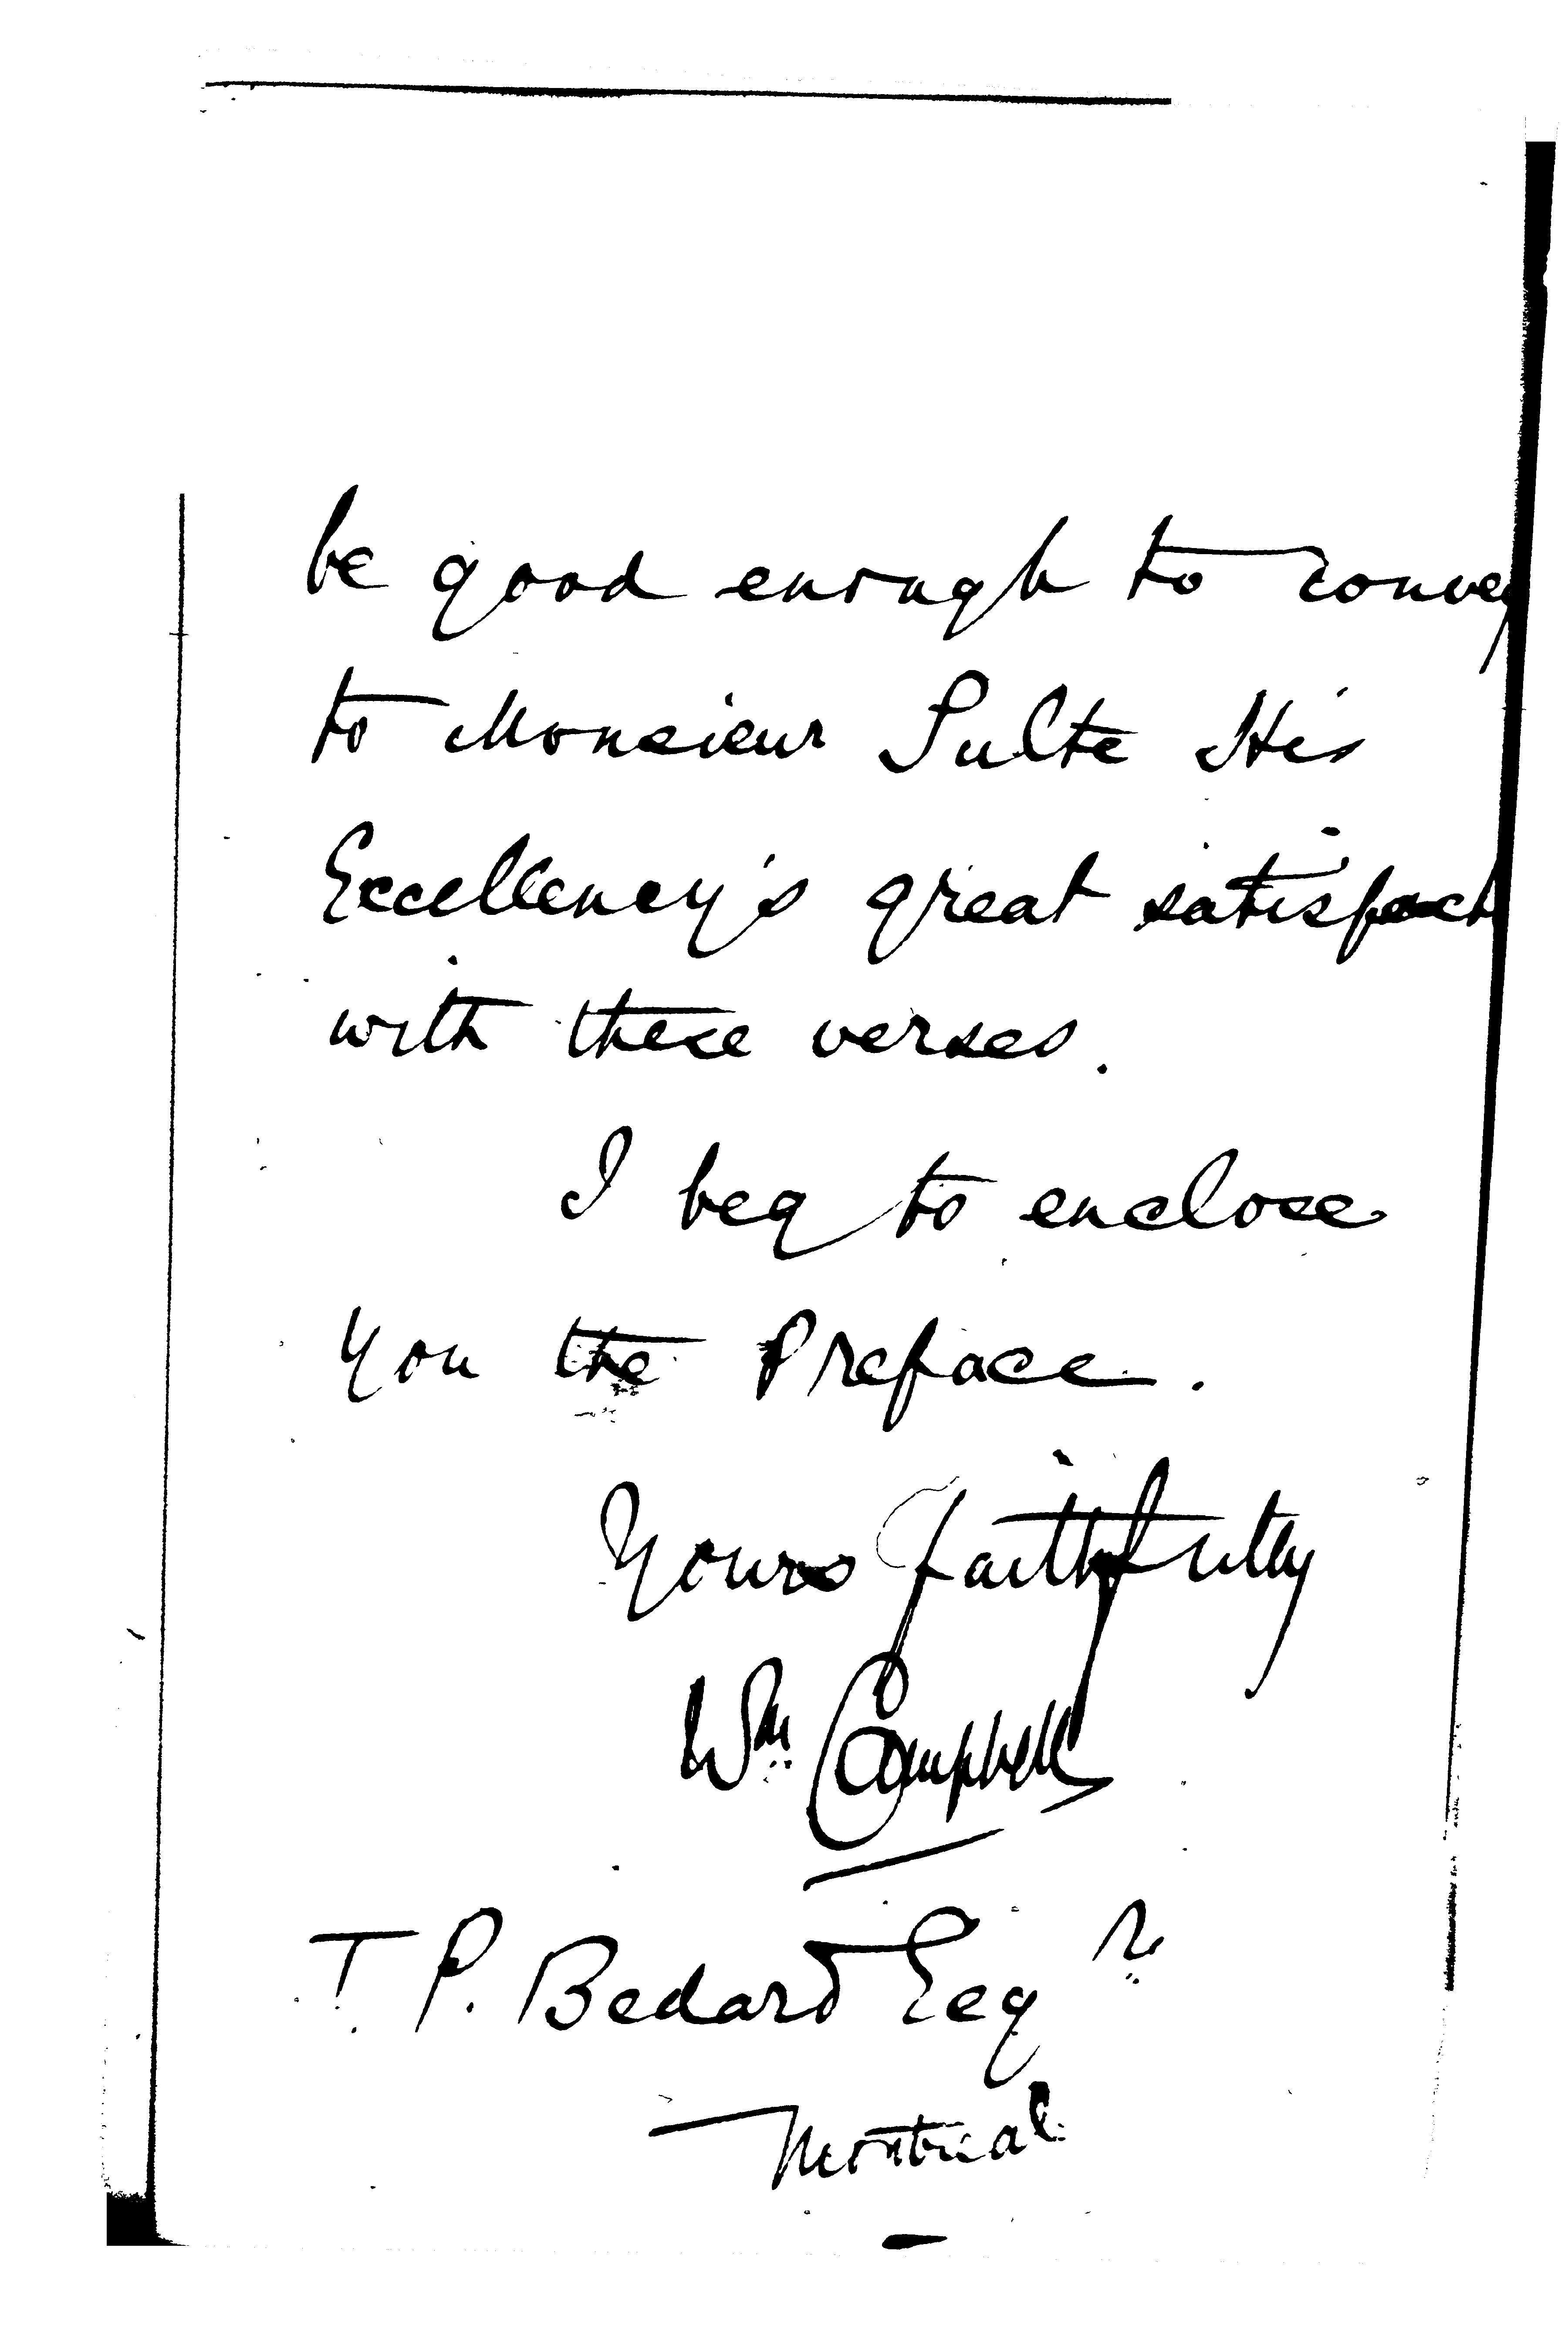 be good enough to convey
to Monsieur Sulte His
Excellency's great satisfact
with these verses.
I beg to enclose
you the Preface.
Yours faithfully
Wm Campbell
T. P. Bedard Esqre
Montreal